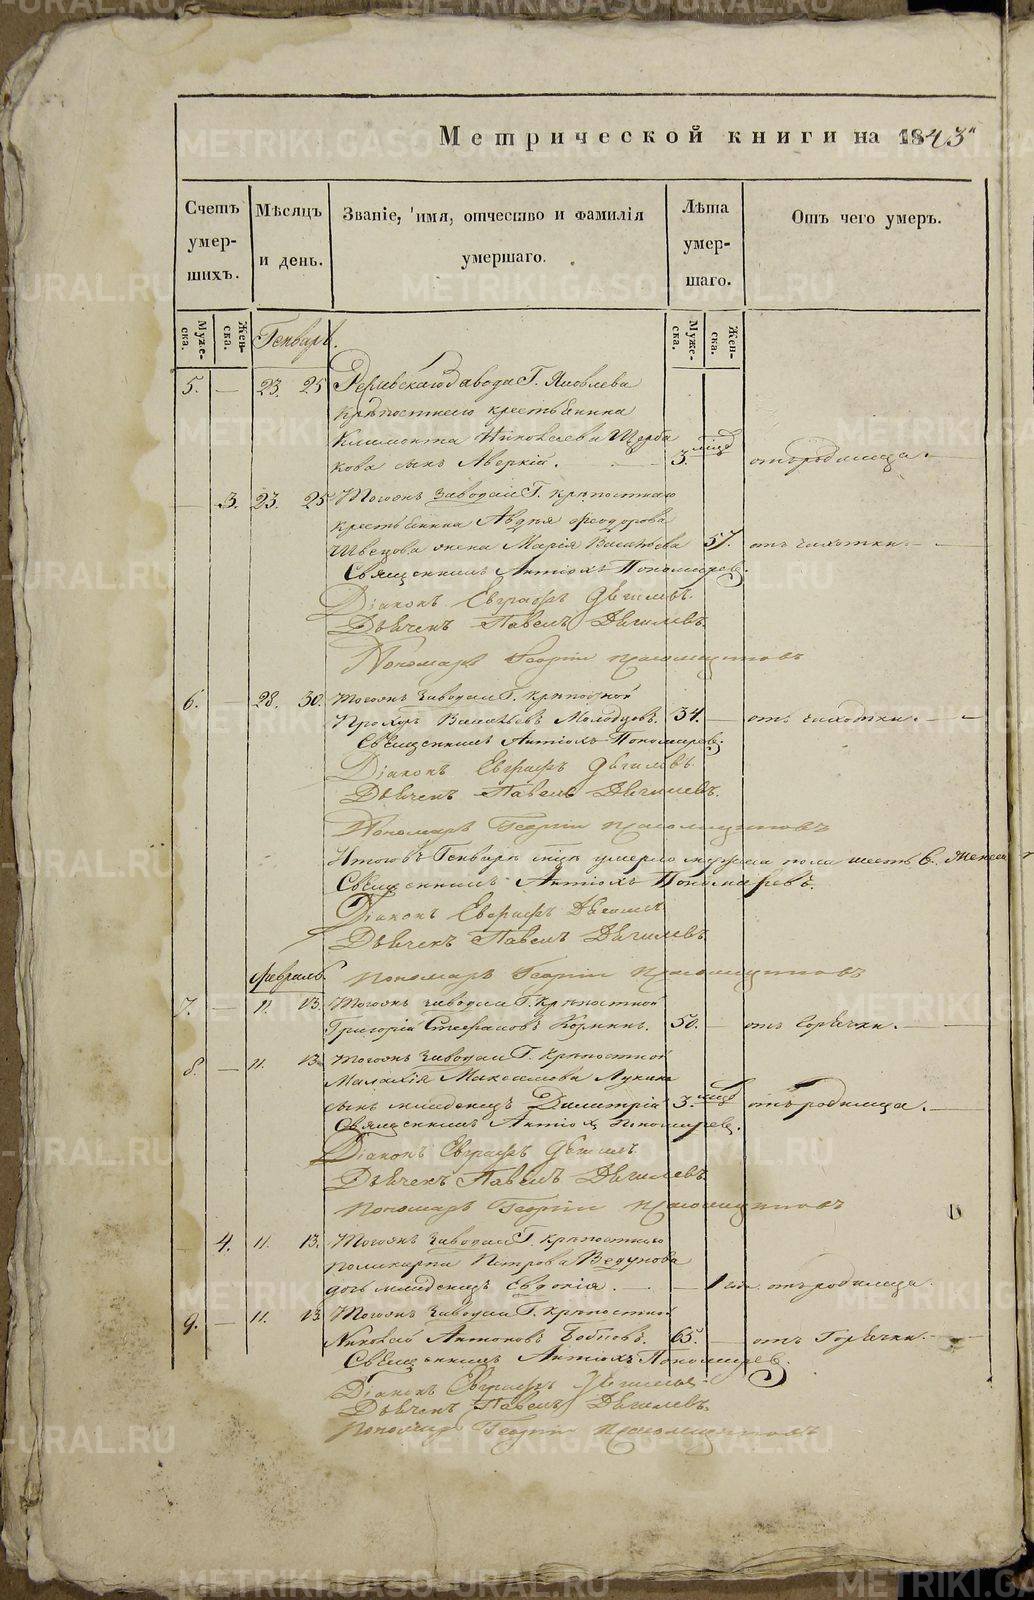 Метрической книги на 1843й
Счетъ умер- шихъ.
Мѣсяцъ и день.
Званіе, имя, отчество и фамилія умершаго.
Лѣта умер- шаго.
Отъ чего умеръ.
Муже- ска.
Жен- ска.
Генварь.
Муже- ска.
Жен- ска.
5. — 23 25 завода Г. Яковлева
крѣпостнаго крестьянина
Климонта Николаева Щерба
кова сынъ Аверкій. 3. мцд отъ родимца.
— 3. 23. 25 Тогожъ завода Г. крѣпостнаго
крестьянина Авдѣя Феодорова
Швецова жена Марія Васильева 57. отъ чихотки.
Священникъ Антіохъ Пономаревъ.
Діаконъ Евграфъ
Дьячекъ Павелъ
Пономарь Георгій
6. — 28. 30. Тогожъ завода Г. крѣпостной
Прохоръ Васильевъ Молодцовъ. 34. — отъ чихотки.
Священникъ Антіохъ Пономаревъ.
Діаконъ Евграфъ
Дьячекъ Павелъ
Пономарь Георгій
Итого въ Генварѣ м-цѣ умерло мужеска пола шесть 6. Женска
Священникъ Антіохъ Пономаревъ.
Діаконъ Евграфъ
Дьячекъ Павелъ
Февраль. Пономарь Георгій
7. — 11. 13. Тогожъ завода Г. крѣпостной
Григорій Стефановъ 50. — отъ Горячки.
8. — 11. 13. Тогожъ завода Г. крѣпостной
Малахія Максимова Лукина
сынъ младенецъ Димитрій 3. мцд отъ родимца.
Священникъ Антіохъ Пономаревъ.
Діаконъ Евграфъ
Дьячекъ Павелъ
Пономарь Георгій
4. 11. 13. Тогожъ завода Г. крѣпостнаго
Поликарпа Петрова Ведунова
дочь младенецъ Евдокія. — 1 год. отъ родимца.
9. — 11. 13. Тогожъ завода Г. крѣпостной
Николай Антоновъ 65. — отъ Горячки.
Священникъ Антіохъ Пономаревъ.
Діаконъ Евграфъ
Дьячекъ Павелъ
Пономарь Георгій
METRIKI.GASO-URAL.RU